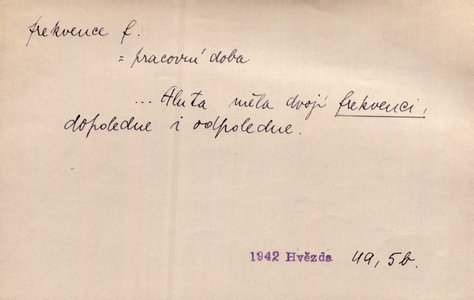 frekvence f.
= pracovní doba
... Aluta měla dvojí frekvenci,
dopoledne i odpoledne.
1942 Hvězda 49, 5b.